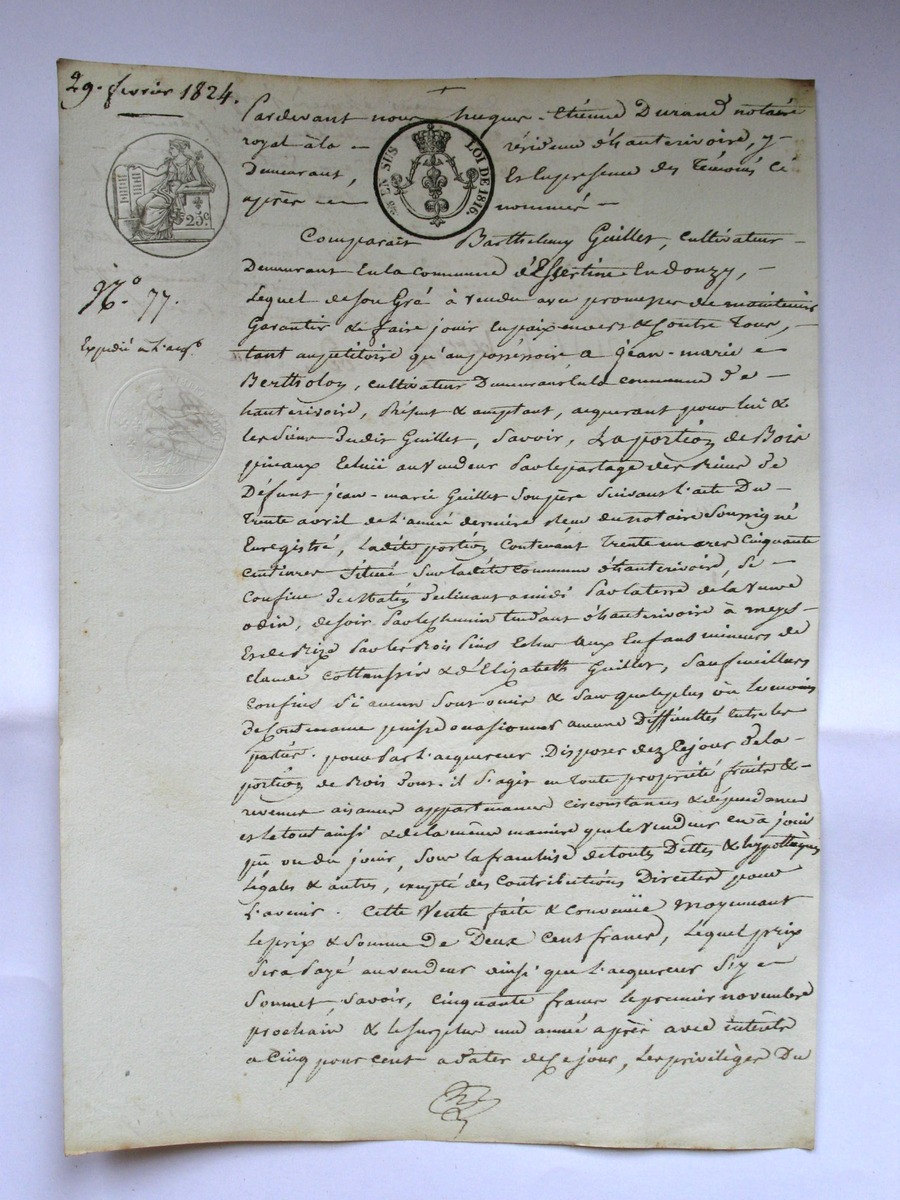 29. fevrier 1824.
Pardevant nous hugues-étienne Durand notaire
royal à la résidence d'hauterivoire, y
EN SUS
LOI DE 1816
Demeurant, Et en presence des Témoins Ci
après nommés
25c.
Comparait Barthelemy Guillet, cultivateur
Demeurant En la commune d'Essertine-en donzy,
N.o 77.
Lequel de son Gré à vendu avec promesse de maintenir
Garantir & de faire jouir en paix envers & Contre Tous,
Expédié à L'acq.r
tant au petitoire qu'au possessoire a jean-marie
Bertholon, cultivateur Demeurant En la commune d'e
hauterivoire, Présent & acceptant, acquerant pour lui &
les siens dudit Guillet, Savoir, La portion de Bois
pineaux Echuë au Vendeur Par le partage des Biens de
Défunt jean-marie Guillet Son père Suivant L'acte Du
Trente avril de L'année dernière Reçu du notaire Soussigné
Enregistré, Ladite portion Contenant Trente un ares Cinquante
centiares Située Sur ladite Commune d'hauterivoire, Se
Confine De Matin Declinant a midi Par la terre de la Veuve
odin, de soir Par le chemin tendant d'hauterivoire à meys
Et de Bize Par les Bois Pins Echus Aux Enfans mineurs de
claude & d'Elizabeth Guillet, Sauf meilleurs
confins Si aucuns Sont omis & Sans que le plus ou le moins
de Contenance puisse occasionner aucune Difficultés Entre les
parties. pour Par L'acquereur Disposer dez Ce jour De la
portion de Bois Dont-il S'agit en toute propriété fruits &
revenus aisances appartenances circonstances & dépendances
et le tout ainsi & de la même manière que le Vendeur en à joui
pû ou du jouir, Sous la franchise de toutes Dettes & hypothèques
Légales & autres, excepté des Contributions Directes pour
L'avenir. Cette Vente faite & Convenuë Moyennant
le prix & Somme De Deux cent francs, Lequel prix
Sera Payé au vendeur ainsi que L'acquereur S'y
Soumet, Savoir, Cinquante francs le premier novembre
prochain & le surplus une année après avec intérêts
a Cinq pour cent a dater de Ce jour, Les privilèges Du